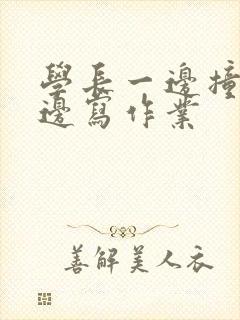 學長一邊撞
邊寫作業
善解美人衣